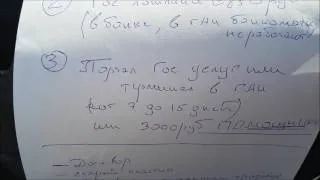 ② Гос пошлина
(в банке, в ГАИ банкоматы
не работают
③ Портал Гос услуг или
терминал в ГАИ
(от 7 до 15 дней)
или 3000 руб
Договор